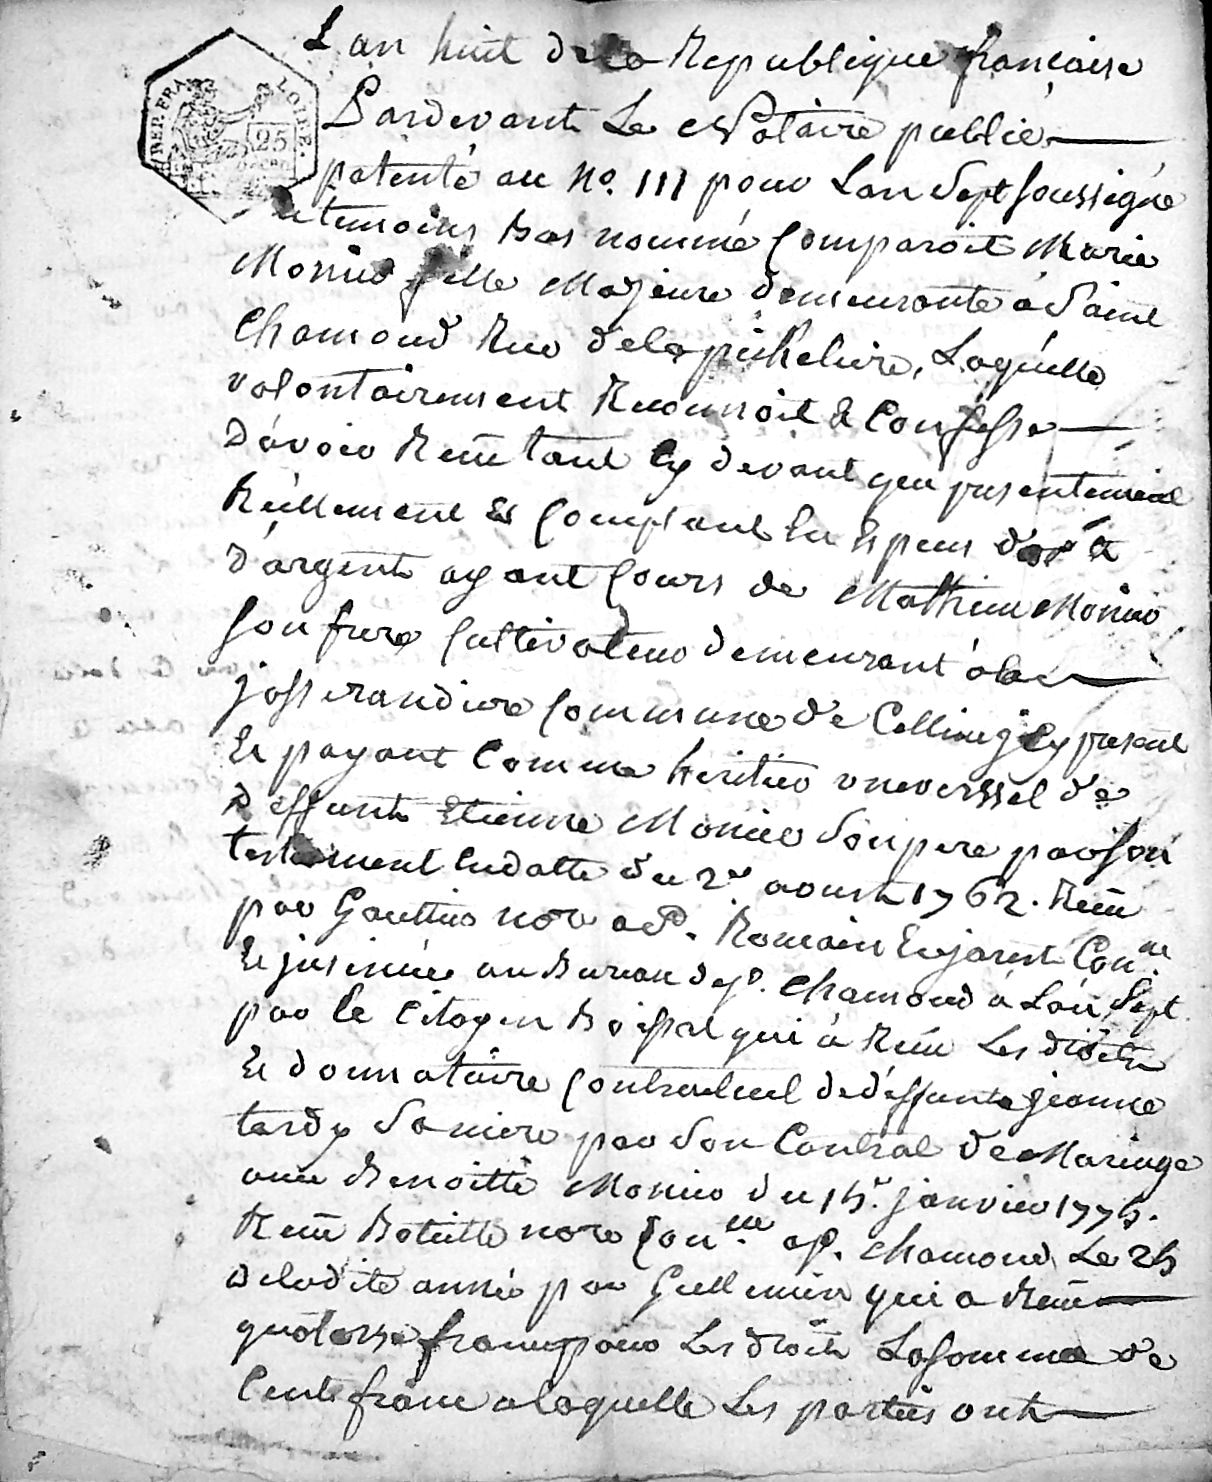 REP. FRA. LOIRE.
25
L'an huit de la Republique francaise
Pardevant Le Notaire public
patenté au No. 111 pour Lan Sept soussigné
et temoins bas nommé Comparoit Marie
Monier fille Majeure demeurante à Saint
Chamond Rue dela picheliere, Laquelle
volontairement Reconnoit & Confesse
D'avoir Reçu tant Cy devant que presentement
Réellement & Comptant En Especes d'or &
D'argent ayant Cours de Mathieu Monier
son frere Cultivateur demeurant à la
josserandiere Commune de Cellieu Cy present
Et payant Comme heritier universsel de
Deffunt Etienne Monier Son pere par son
testament En datte du 2e. aoust 1762. Reçu
par Gaultier nore a St. Romain En jarest Con.né
Et insinué au Bureau de St. Chamond à L'an Sept
par le Citoyen Boissat qui à Reçu Les droits
Et donnataire Contractuel de déffunte jeanne
tardy Sa mere par Son Contrat de Mariage
avec Benoitte Monier du 15e. janvier 1775.
Reçu Bateille nore Con.né a St. Chamond Le 25
de ladite année par Guillemin qui a Reçu
quatorse francs pour Les droits La somme de
Cent franc a laquelle Les parties ont